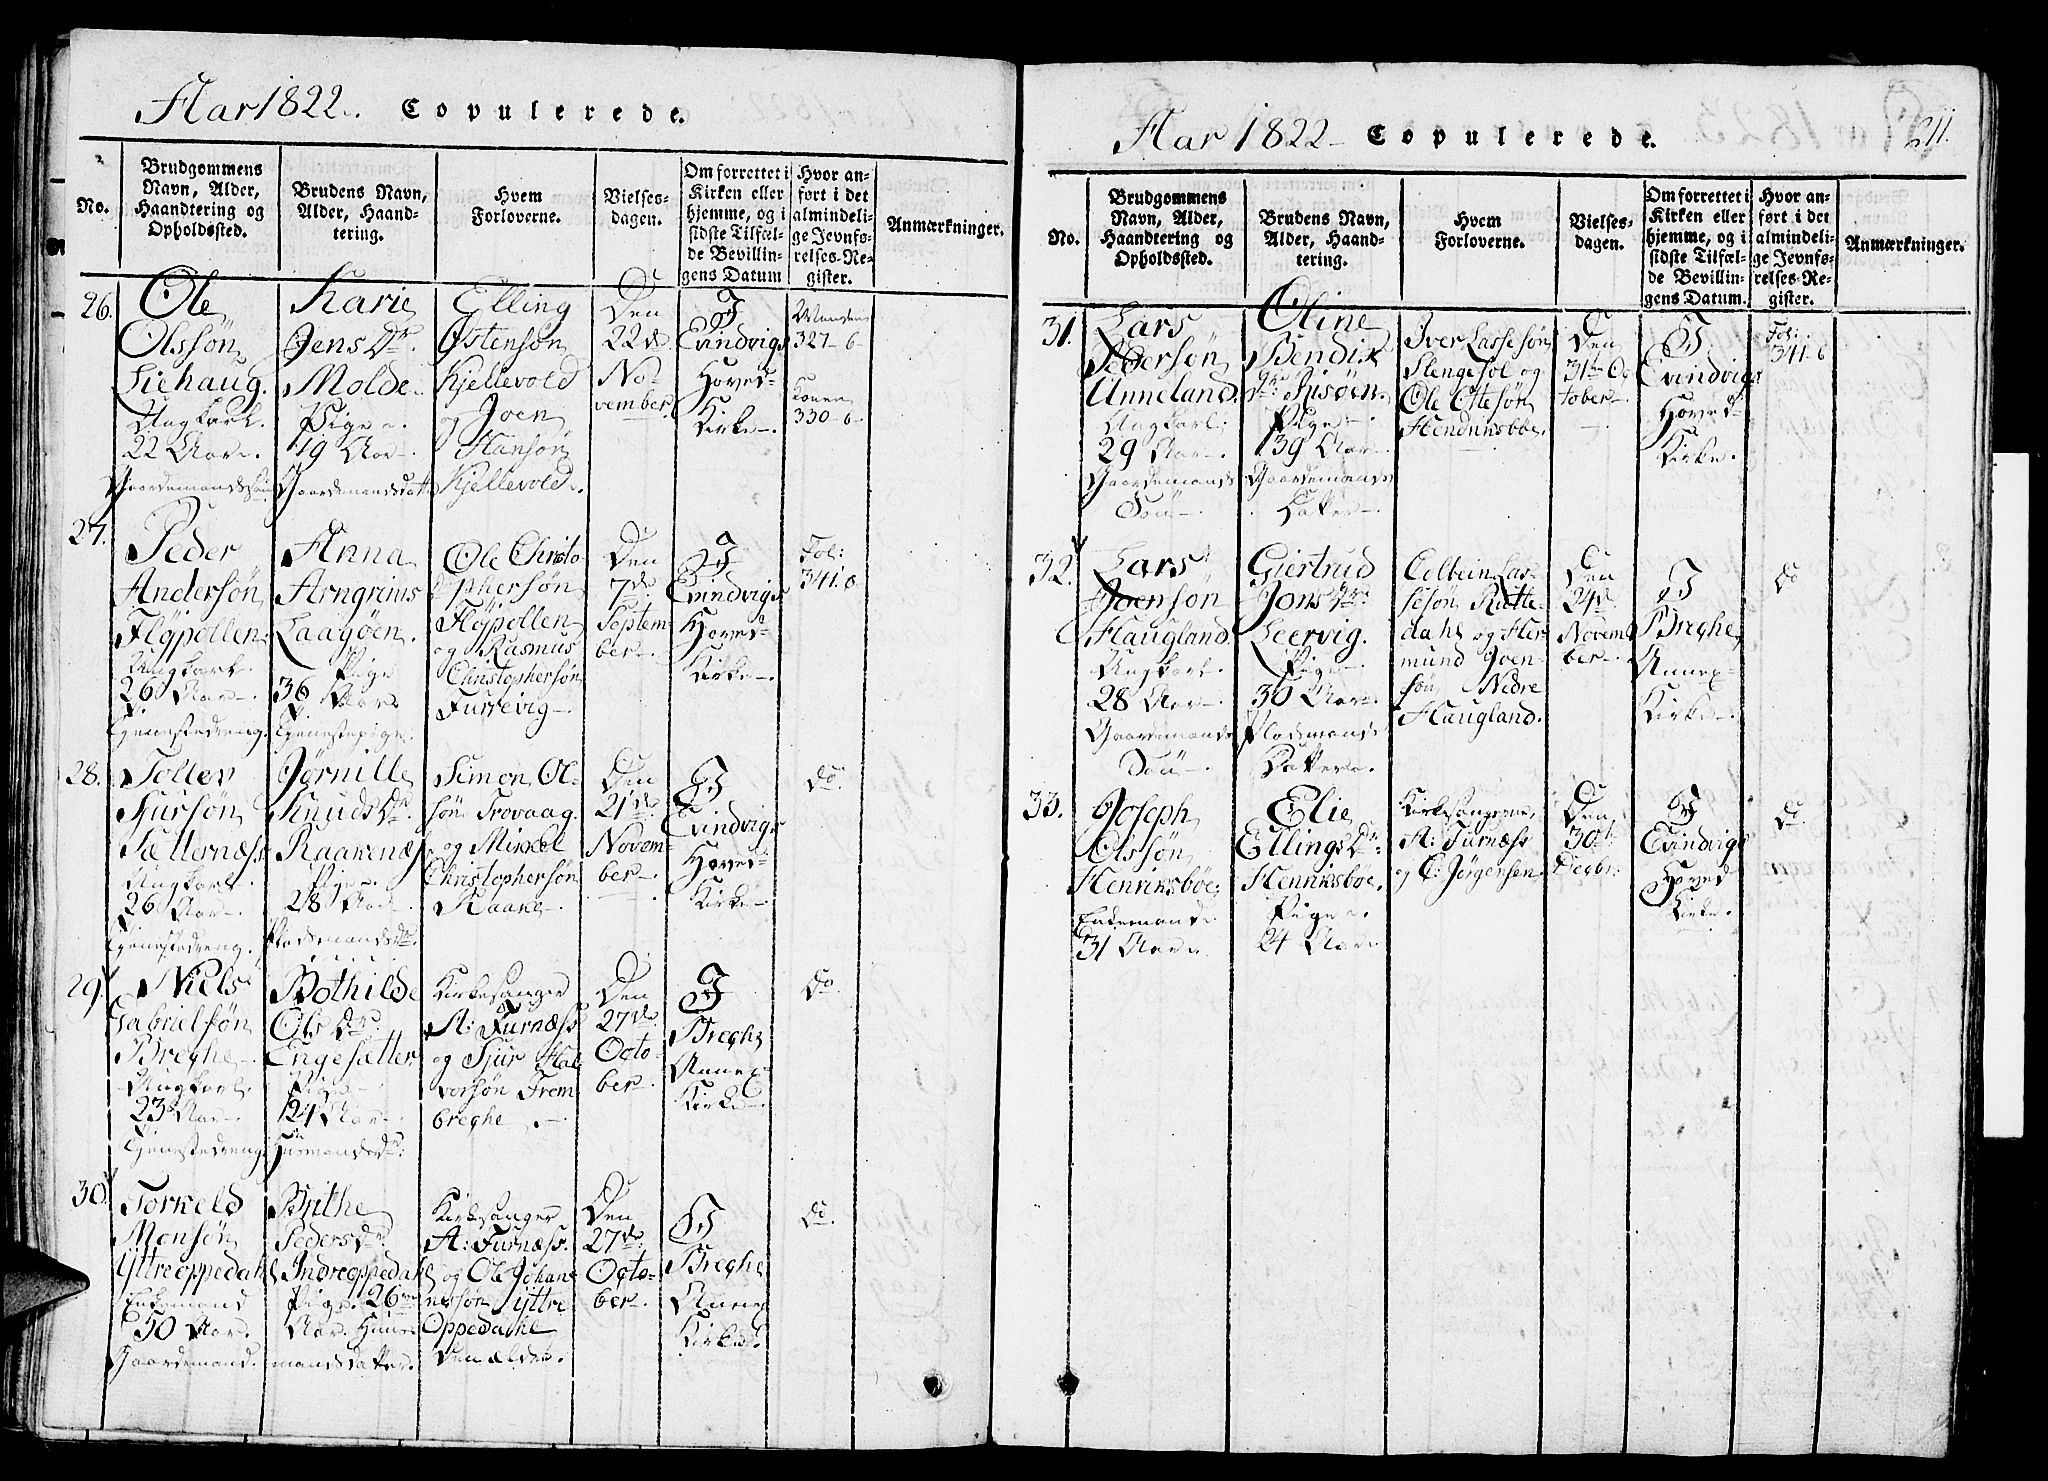 Aar 1822. Copulerede.
No.
Brudgommens
Navn, Alder,
Haandtering og
Opholdssted.
Brudens Navn,
Alder, Haand-
tering.
Hvem
Forloverne.
Vielses-
dagen.
Om forrettet i
Kirken eller
hjemme, og i
sidste Tilfæl-
de Bevillin-
gens Datum
Hvor an-
ført i det
almindeli-
ge Jevnfø-
relses-Re-
gister.
Anmærkninger.
26.
Ole
Olssøn
Siehaug.
Ungkarl.
22 Aar.
Gaardemandssøn
Karie
Jens Dr
Molde.
Pige.
19 Aar.
Gaardemandsdatt
Elling
Østensøn
Kjellevold
og Joen
Hansøn
Kjellevold.
Den
22de
No-
vember
I
Evindvigs
Hoved-
Kirke.
Manden
327-6
Konen
330-6-
27.
Peder
Andersøn
Fløpollen.
Ungkarl.
26 Aar.
Tjenestedreng.
Anna
Arngrims
Laagøen.
Pige
36 Aar
Tjenestepige.
Ole Christo-
phersøn
Fløpollen
og Rasmus
Christophersøn
Furrevig.
Den
7de
Septem-
ber.
I
Evindvigs
Hoved-
Kirke.
Fol:
341.6
28.
Tollev
Sjursøn
Sæternæss
Ungkarl.
26 Aar.
Tjenestedreng.
Jørnille
Knuds Dr.
Raakenæs
Pige.
28 Aar.
Pladsmandsdr.
Simon Ol-
søn Trovaag.
og Mikkel
Christophersøn
Raake.
Den
21de
Novem-
ber.
I
Evindvigs
Hoved-
Kirke.
do.
29.
Niels
Gabrielsøn
Breghe.
Ungkarl.
23 Aar.
Tjenestedreng
Bothilde
Ols Dr.
Engesætter
Pige.
24 Aar.
Huusmandsdr.
Kirkesanger
A: Furnæss
og Sjur Hal-
vorsøn Frem
breghe.
Den
27de
Octo-
ber.
I
Breghe
Annex-
Kirke.
do.
30.
Torkeld
Monsøn
Yttreoppedahl
Enkemand
50 Aar.
Gaardemand.
Brithe
Peders Dr.
Indreoppedahl
Pige. 26
Aar. Huus-
mandsdatter.
Kirkesanger
A: Furnæss.
og Ole Johan-
nessøn Yttre
Oppedahl
den ældre.
Den
27de
Octo-
ber.
I
Breghe
Annex
Kirke.
do.
Aar 1822 Copulerede.
211.
No.
Brudgommens
Navn, Alder,
Haandtering og
Opholdssted.
Brudens Navn,
Alder, Haand-
tering.
Hvem
Forloverne.
Vielses-
dagen.
Om forrettet i
Kirken eller
hjemme, og i
sidste Tilfæl-
de Bevillin-
gens Datum.
Hvor an-
ført i det
almindeli-
ge Jevnfø-
relses-Re-
gister.
Anmærkninger.
31.
Lars
Pedersøn
Unneland.
Ungkarl.
29 Aar.
Gaardemands
Søn.
Oline
Bendix
Dr.
Pige.
39 Aar.
Gaardemands
Datter.
Iver Lassesøn
Slengesol og
Ole Ottesøn
Hendriksbøe.
Den
31te Oc
tober
I
Evindvigs
Hoved-
Kirke.
Fol:
341-6
32.
Lars
Joensøn
Haugland.
Ungkarl.
28 Aar.
Gaardemands
Søn.
Giertrud
Jons Dr.
Leervig.
Pige.
30 Aar.
Pladsmands
Datter.
Colbein Las-
sesøn Rutle-
dahl og Her-
mund Joen-
søn Nedre
Haugland.
Den
24de
Novem
ber.
I
Breghe
Annex-
Kirke.
do
33.
Joseph
Olssøn
Henriksbøe.
Enkemand.
31 Aar.
Elie
Ellings Dr.
Henriksboe.
Pige.
24 Aar.
Kirkesangerne
A: Furnæss
og C: Jørgensen.
Den
30te
Decbr.
I
Evindvigs
Hoved
Kirke.
do.